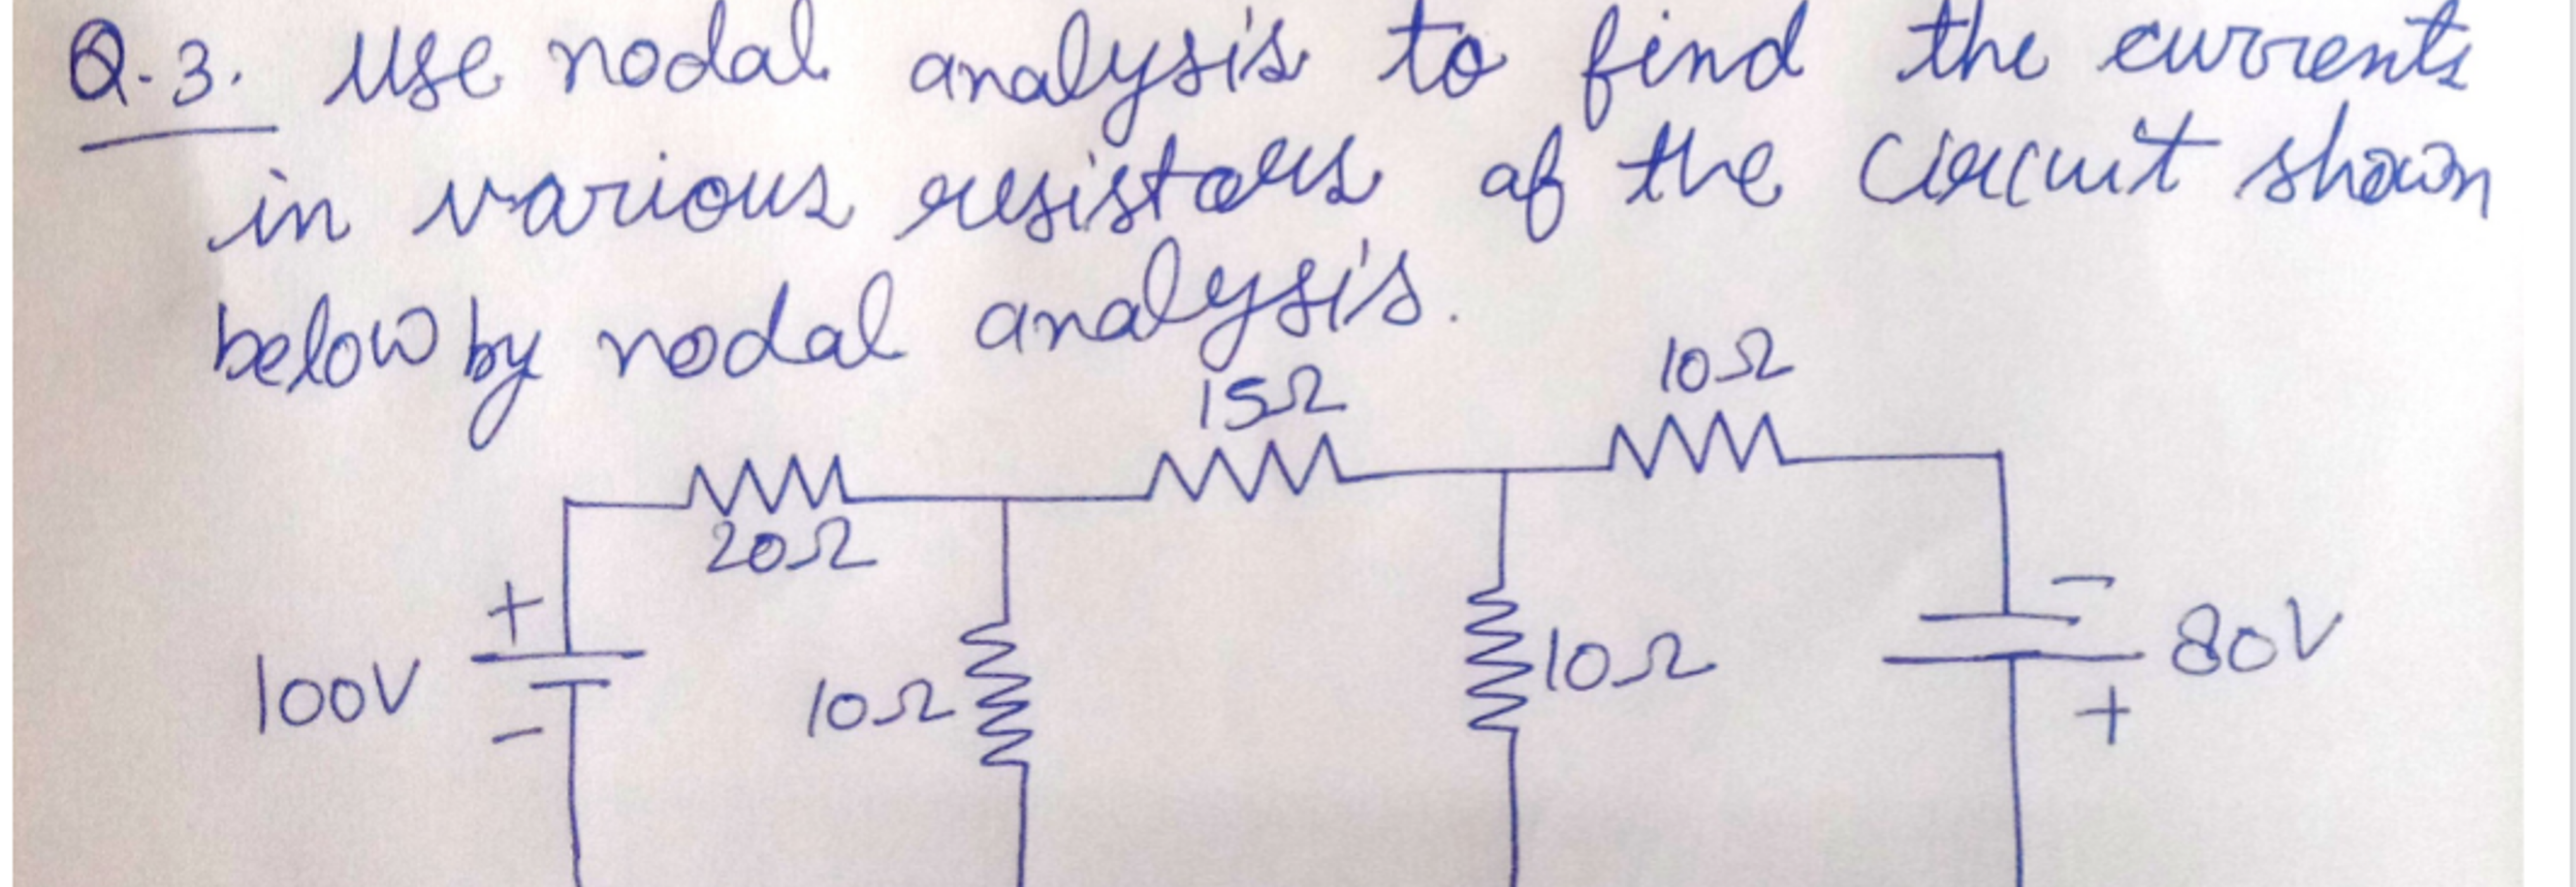 Q.3. Use nodal analysis to find the currents
in various resistors of the circuit shown
below by nodal analysis.
15Ω
10Ω
20Ω
+
-
100V
10Ω
10Ω
80V
-
+